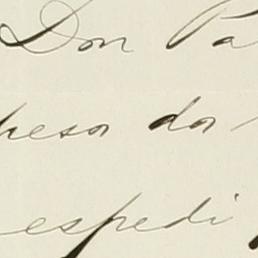 Don Pa
presor dor
espedi